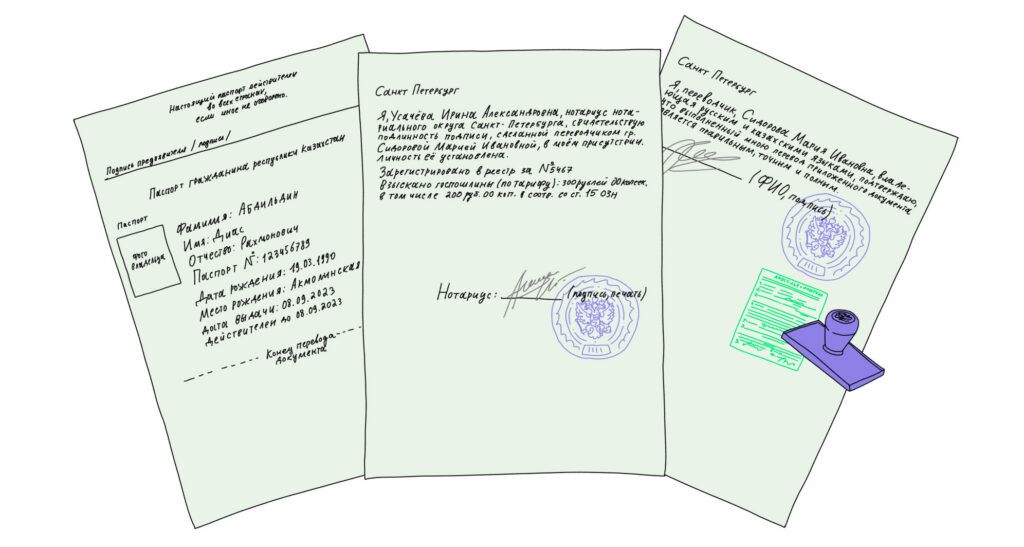 Настоящий паспорт действителен
во всех странах,
если иное не оговорено.
Подпись предъявителя / подпись /
Паспорт гражданина республики Казахстан
Паспорт
фото
владельца
Фамилия: Абдильдин
Имя: Диас
Отчество: Рахмонович
Паспорт №: 123456789
Дата рождения: 19.03.1990
Место рождения: Акмолинская
дата выдачи: 08.09.2023
действителен до 08.09.2023
Конец перевода
документа
Санкт Петербург
Я, Усачёва Ирина Александровна, нотариус нота-
риального округа Санкт-Петербурга, свидетельствую
подлинность подписи, сделанной переводчиком гр.
Сидоровой Марией Ивановной, в моём присутствии.
Личность её установлена.
Зарегистрировано в реестр за №5467
Взыскано госпошлины (по тарифу): 300 рублей 00 копеек,
в том числе 200 руб. 00 коп. в соотв. со ст. 15 ОЗН
Нотариус: (подпись, печать)
Санкт Петербург
Я, переводчик, Сидорова Мария Ивановна, владе-
ющая русским и казахскими языками, подтверждаю,
что выполненный мною перевод приложенного документа
является правильным, точным и полным.
(ФИО, подпись)